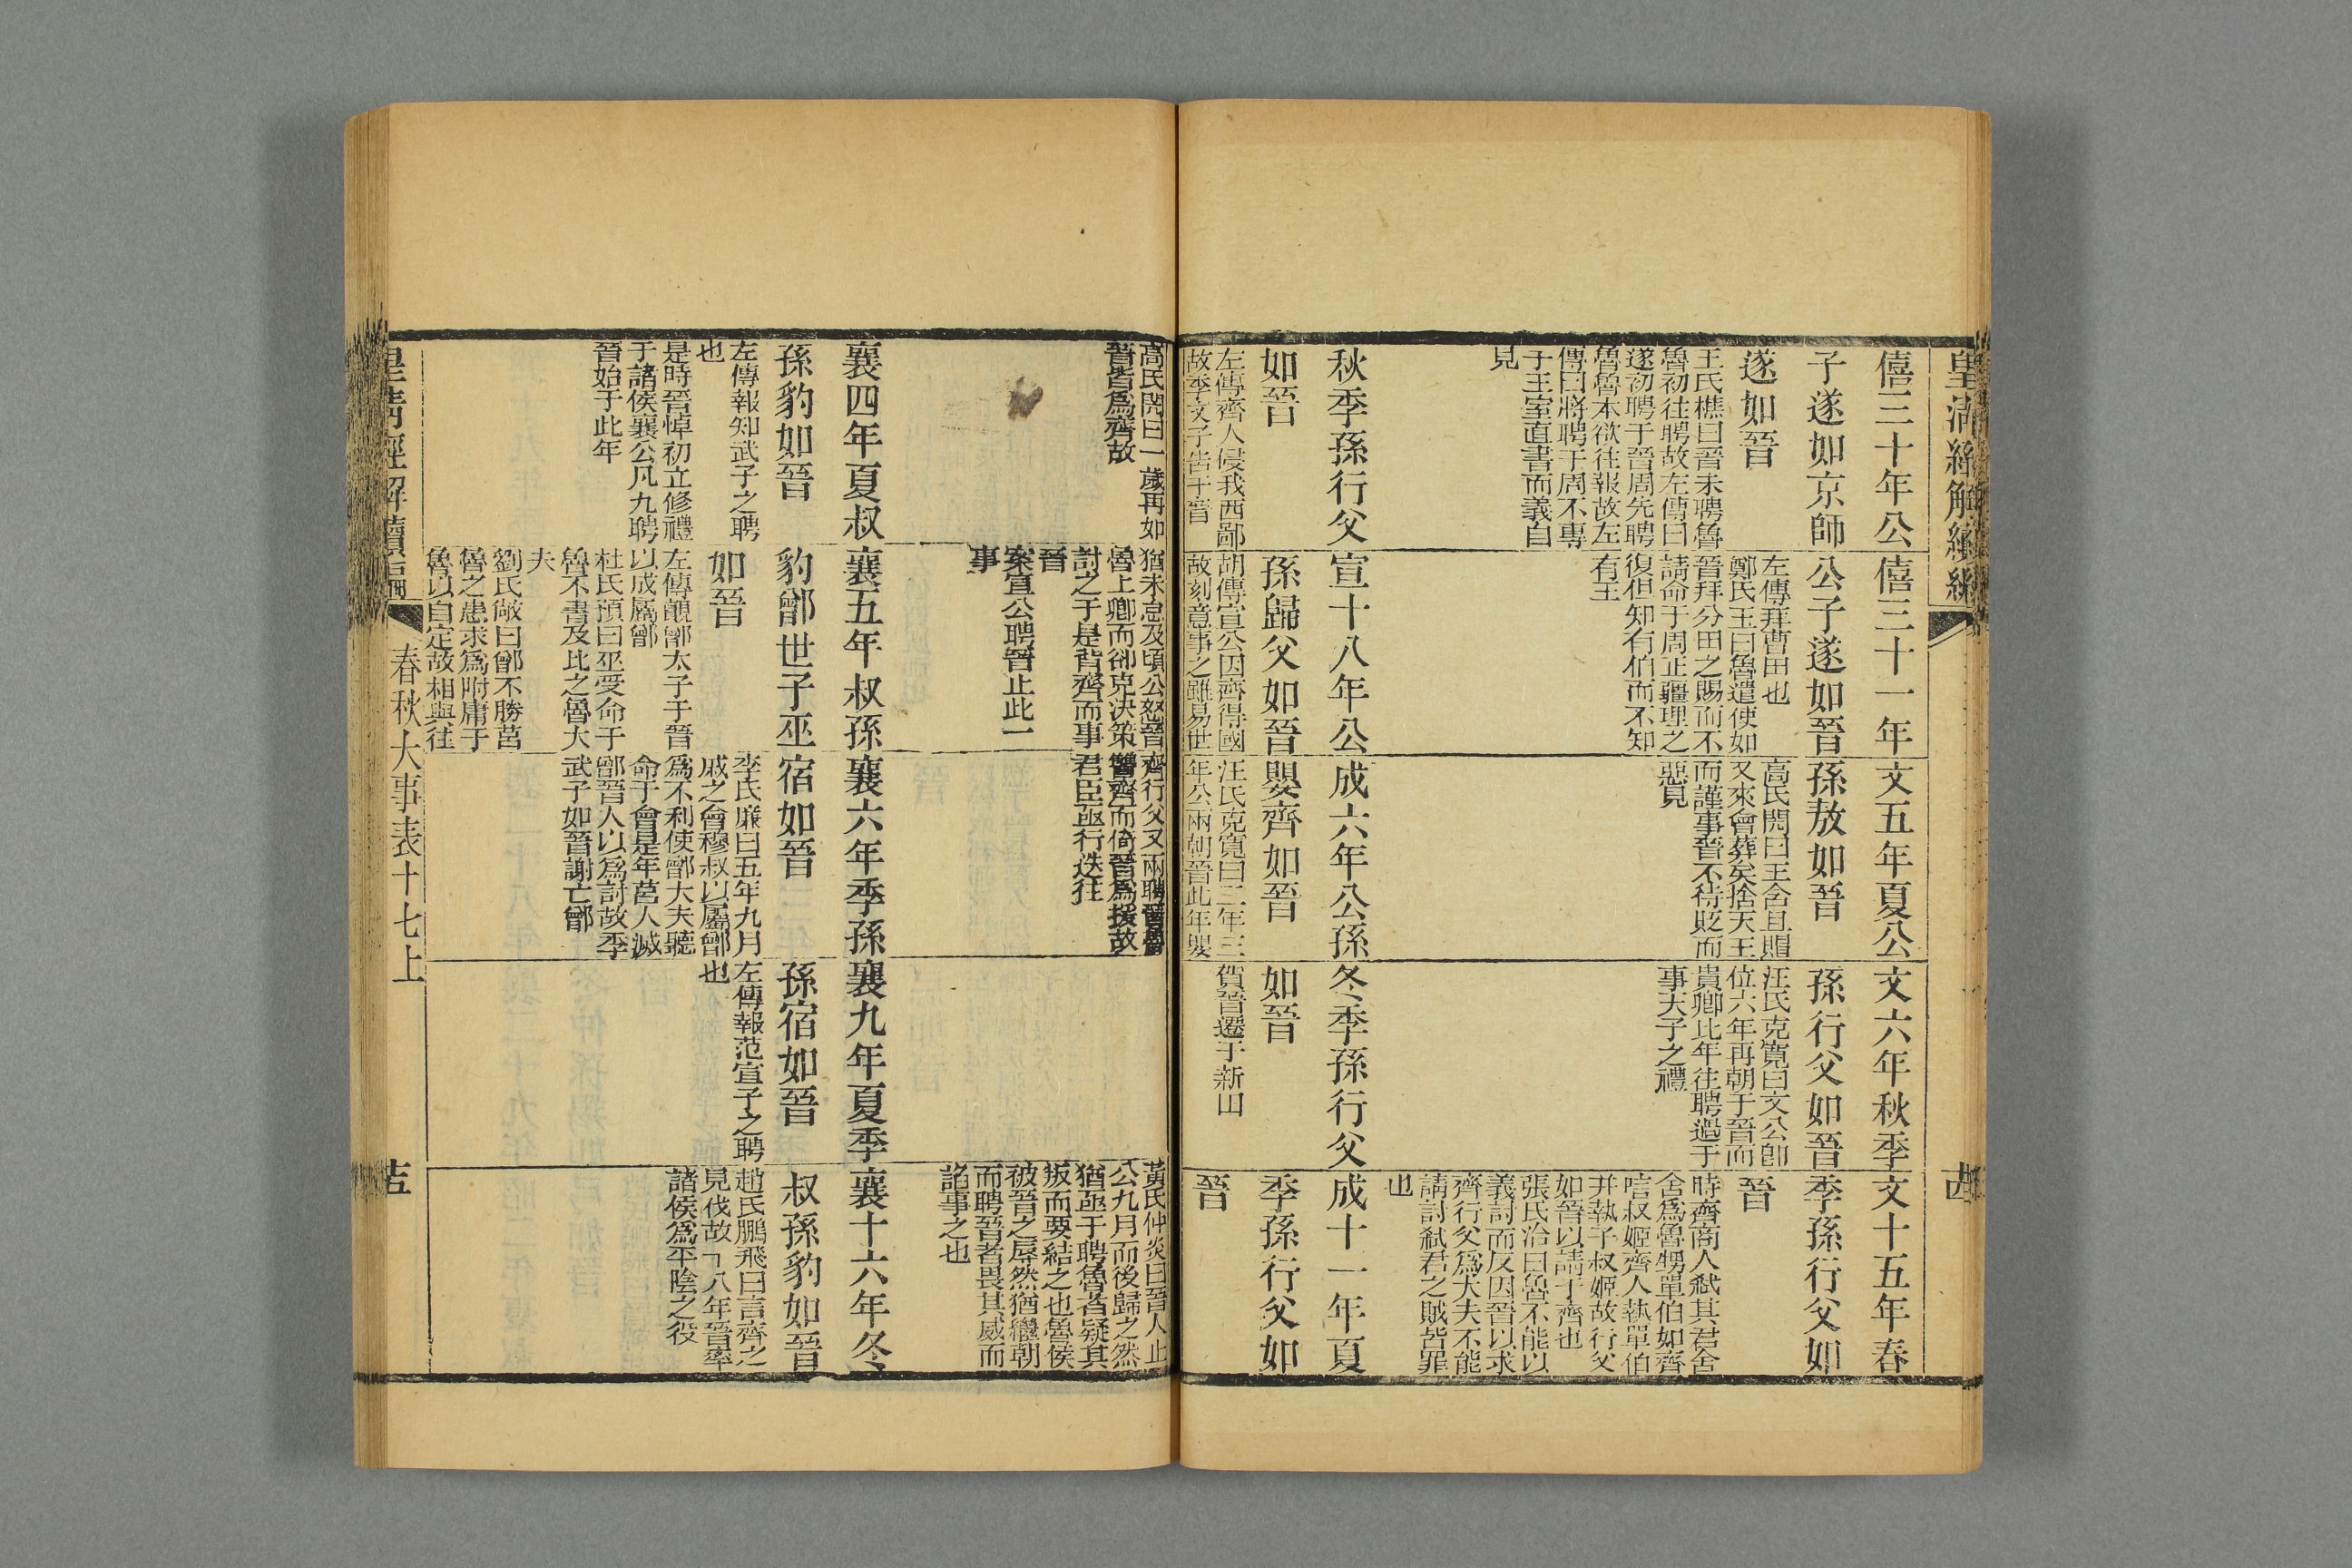 皇清經解續編
僖三十年公
子遂如京師
遂如晉
王氏樵曰晉未聘魯
魯初往聘故左傳曰
遂初聘于晉周先聘
魯魯本欲往報故左
傳曰將聘于周不專
于王室直書而義自
見
僖三十一年
公子遂如晉
左傳拜曹田也
鄭氏玉曰魯遣使如
晉拜分田之賜而不
請命于周正疆理之
復但知有伯而不知
有王
文五年夏公
孫敖如晉
高氏閌曰王含且賵
又來會葬矣捨天王
而謹事晉不待貶而
惡見
文六年秋季
孫行父如晉
汪氏克寬曰文公卽
位六年再朝于晉而
貴卿比年往聘過于
事天子之禮
文十五年春
季孫行父如
晉
時齊商人弑其君舍
舍爲魯甥單伯如齊
唁叔姬齊人執單伯
幷執子叔姬故行父
如晉以請于齊也
張氏洽曰魯不能以
義討而反因晉以求
齊行父爲大夫不能
請討弑君之賊皆罪
也
秋季孫行父
如晉
左傳齊人侵我西鄙
故季文子告于晉
宣十八年公
孫歸父如晉
胡傳宣公因齊得國
故刻意事之雖易世
成六年公孫
嬰齊如晉
汪氏克寬曰二年三
年公兩朝晉此年嬰
冬季孫行父
如晉
賀晉遷于新田
成十一年夏
季孫行父如
晉
高氏閌曰一歲再如
晉皆爲齊故
猶未怠及頃公怒晉
魯上卿而郤克決策
討之于是背齊而事
晉
案宣公聘晉止此一
事
齊行父又兩聘晉魯
讐齊而倚晉爲援故
君臣亟行迭往
黃氏仲炎曰晉人止
公九月而後歸之然
猶亟于聘魯者疑其
叛而要結之也魯侯
被晉之辱然猶繼朝
而聘晉者畏其威而
諂事之也
襄四年夏叔
孫豹如晉
左傳報知武子之聘
也
是時晉悼初立修禮
于諸侯襄公凡九聘
晉始于此年
襄五年叔孫
豹鄫世子巫
如晉
左傳覿鄫太子于晉
以成屬鄫
杜氏預曰巫受命于
魯不書及比之魯大
夫
劉氏敞曰鄫不勝莒
魯之患求爲附庸于
魯以自定故相與往
襄六年季孫
宿如晉
李氏廉曰五年九月
戚之會穆叔以屬鄫
爲不利使鄫大夫聽
命于會是年莒人滅
鄫晉人以爲討故季
武子如晉謝亡鄫
襄九年夏季
孫宿如晉
左傳報范宣子之聘
也
襄十六年冬
叔孫豹如晉
趙氏鵬飛曰言齊之
見伐故十八年晉率
諸侯爲平陰之役
皇清經解續編
春秋大事表十七上